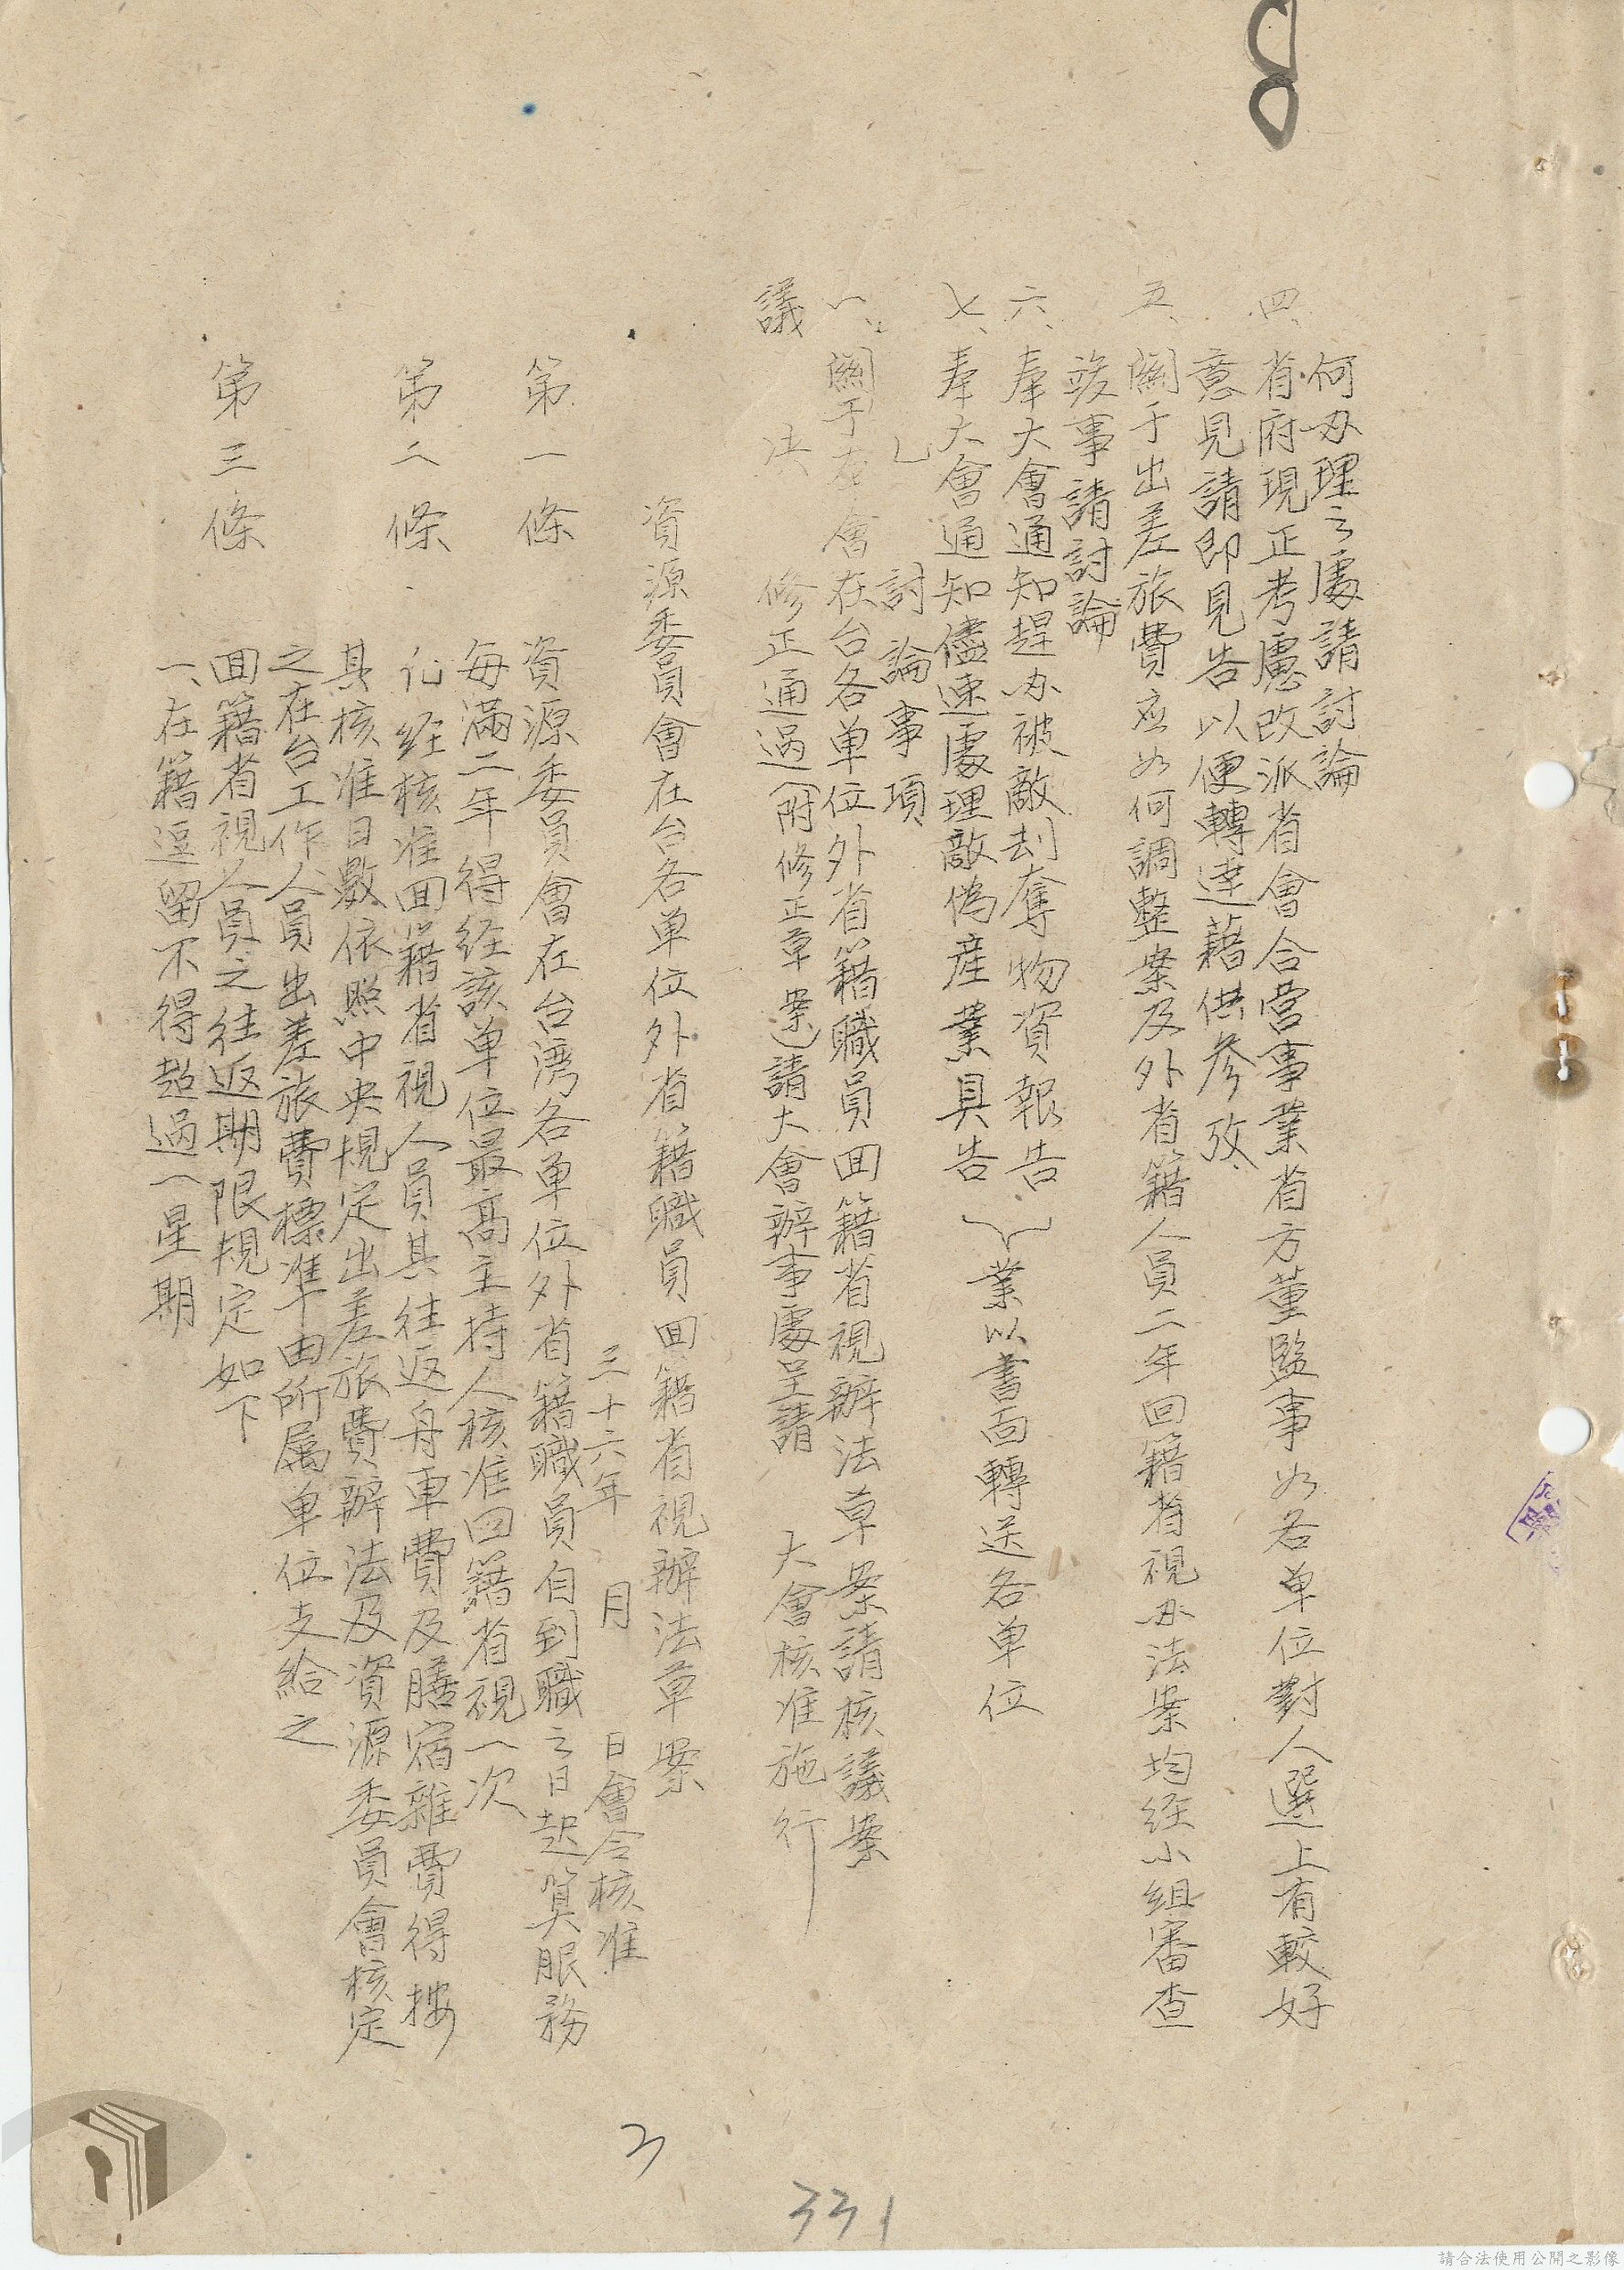 8
何办理之處請討論
四、省府現正考慮改派省會合营事業省方董監事如各单位對人選上有較好
意見請即見告以便轉達藉供參攷
五、關于出差旅費应如何調整案及外省籍人員二年回籍省視办法案均経小組審查
竣事請討論
六、奉大會通知趕办被敵刦奪物資報告
七、奉大會通知儘速處理敵偽產業具告
業以書面轉送各单位
乙 討論事項
一、關于本會在台各单位外省籍職員囬籍省視辦法草案請核議案
議決 修正通過(附修正草案)請大會辦事處呈請 大會核准施行
資源委員會在台各单位外省籍職員囬籍省視辦法草案
三十六年 月 日會令核准
第一條 資源委員會在台湾各单位外省籍職員自到職之日起算服務
每滿二年得経該单位最高主持人核准囬籍省視一次
第二條 経核准囬籍省視人員其往返舟車費及膳宿雜費得按
其核准日數依照中央規定出差旅費辦法及資源委員會核定
之在台工作人員出差旅費標準由所属单位支給之
第三條 囬籍省視人員之往返期限規定如下
一、在籍逗留不得超過一星期
3
331
請合法使用公開之影像